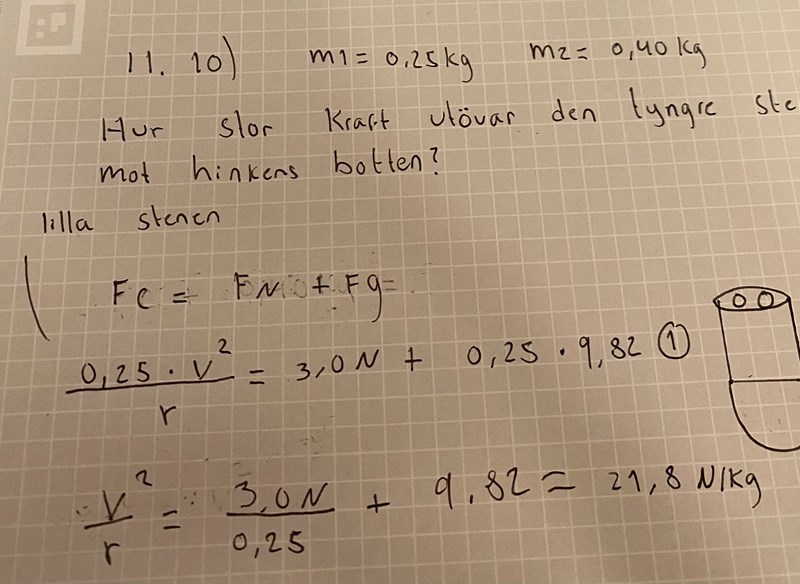 11. 10) m1 = 0,25 kg m2 = 0,40 kg
Hur stor kraft utövar den tyngre ste
mot hinkens botten?
lilla stenen
Fc = FN + Fg =
0,25 · v² / r = 3,0 N + 0,25 · 9,82 ①
v² / r = 3,0 N / 0,25 + 9,82 = 21,8 N/kg